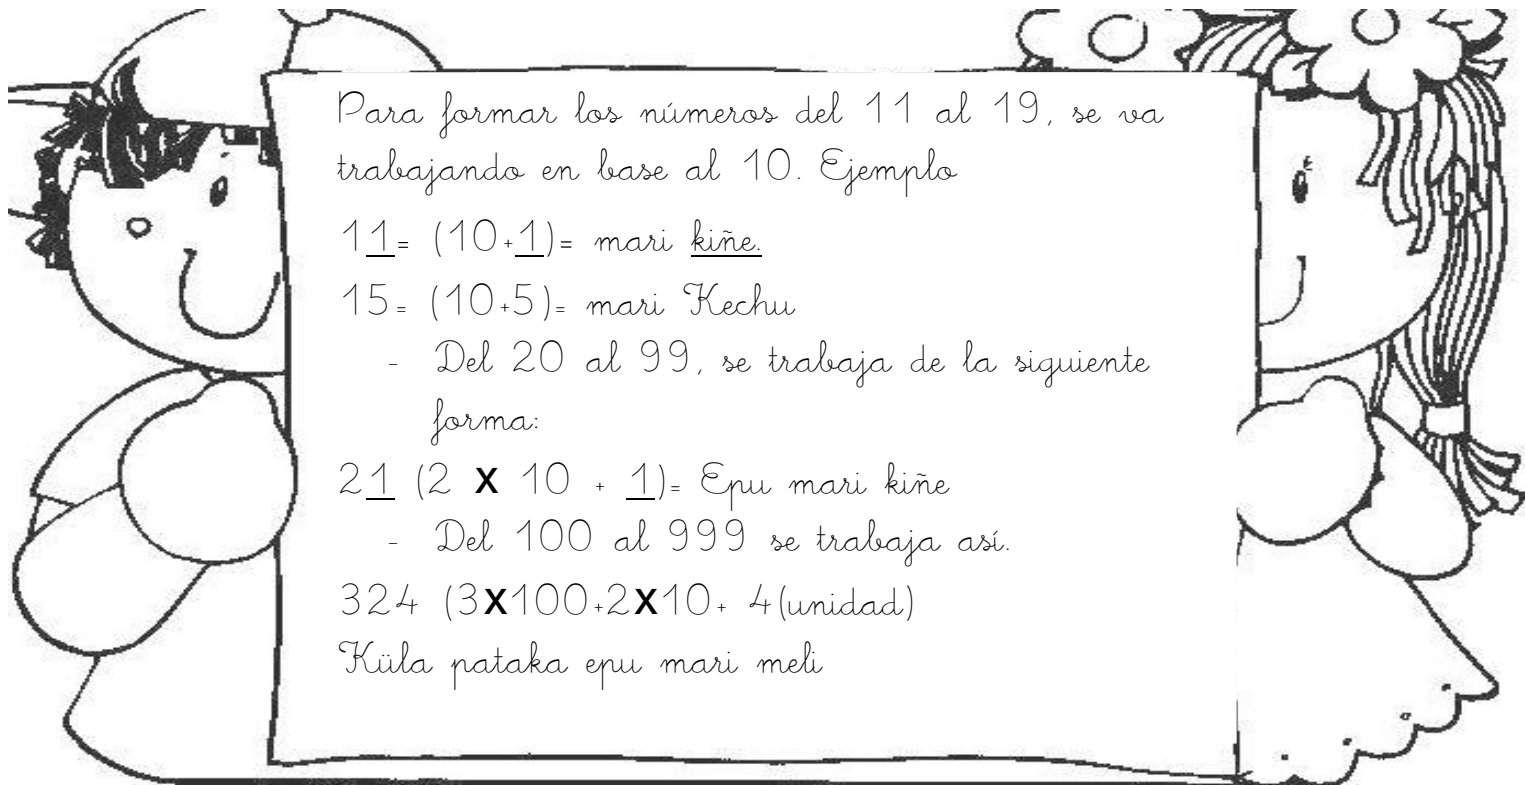 Para formar los números del 11 al 19, se va
trabajando en base al 10. Ejemplo
11= (10+1)= mari kiñe.
15= (10+5)= mari Kechu
- Del 20 al 99, se trabaja de la siguiente
forma:
21 (2 x 10 + 1)= Epu mari kiñe
- Del 100 al 999 se trabaja así.
324 (3x100+2x10+ 4(unidad)
Küla pataka epu mari meli